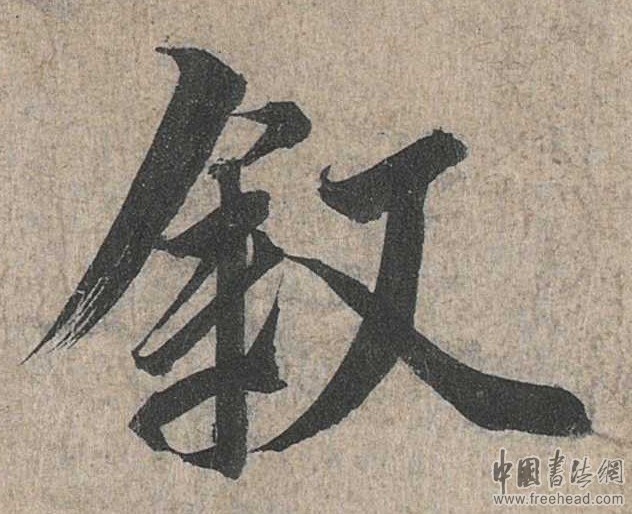 叙
中國書法網
www.freehead.com